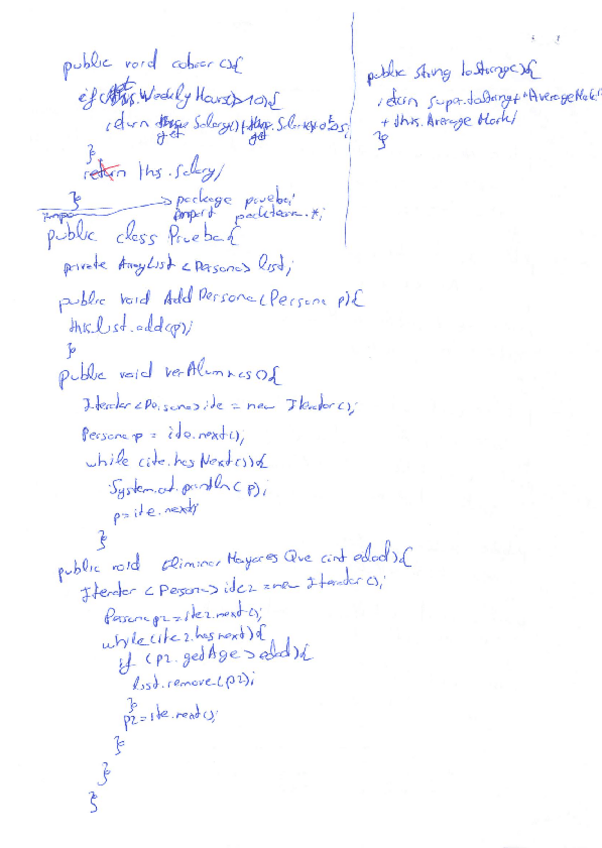 public void cobrar(){
if (get WeeklyHours()>10){
return get Salary()+get Salary*0.05;
}
return this.Salary/
}
package prueba;
import packteoria.*;
public class Prueba{
private ArrayList <Persona> list;
public void AddPersona(Persona p){
this.list.add(p);
}
public void verAlumnos(){
Iterator<Persona> ite = new Iterator();
Persona p = ite.next();
while (ite.hasNext()){
System.out.println(p);
p=ite.next/
}
public void EliminarMayoresQue (int edad){
Iterator <Persona> ite2 = new Iterator();
Persona p2 = ite2.next();
while(ite2.hasnext){
if (p2.getAge > edad){
list.remove(p2);
}
p2=ite.next();
}
}
}
public String toString(){
return super.toString+"AverageMark"
+ this.Average Mark/
}